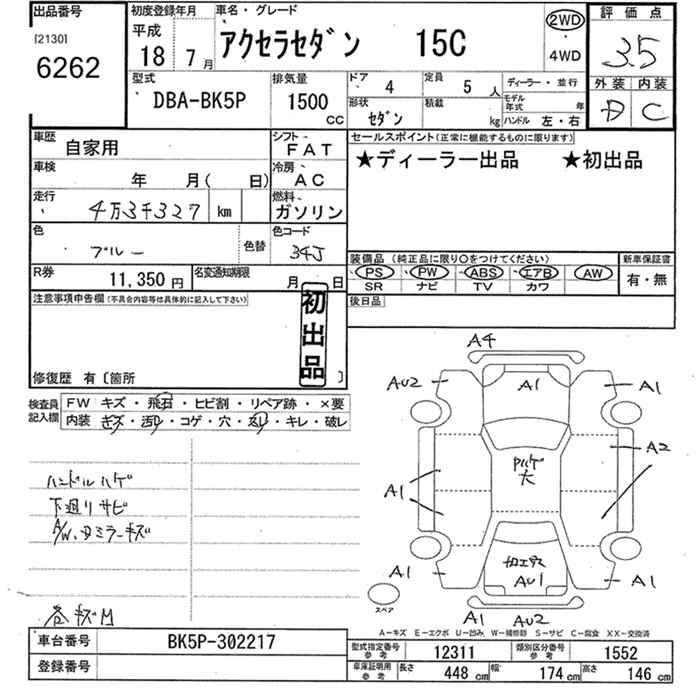 出品番号
[2130]
6262
初度登録年月
平成
18 7月
車名・グレード
アクセラセダン 15C
2WD
4WD
評価点
3.5
外装 内装
D C
型式
DBA-BK5P
排気量
1500 CC
ドア 4
定員 5 人
ディーラー・並行
形状 セダン
積載 kg
モデル年式 年
ハンドル 左・右
車歴 自家用
シフト FAT
車検 年 月( 日)
冷房 AC
走行 4万3千327 km
燃料 ガソリン
色 ブルー
色替
色コード 34J
R券 11,350円
名変通知期限 月 日
セールスポイント(正常に機能するものに限ります)
★ディーラー出品 ★初出品
装備品(純正品に限り○をつけてください)
新車保証書
PS PW ABS エアB AW
有・無
SR ナビ TV カワ
後日品
注意事項申告欄(不具合内容等は具体的に記入して下さい)
初出品
修復歴 有〔箇所
検査員記入欄
FW キズ・飛石・ヒビ割・リペア跡・×要
内装 キズ・汚れ・コゲ・穴・スレ・キレ・破レ
ハンドルハゲ
下廻りサビ
A/W、Dミラーキズ
各キズM
A4
AU2
A1
A1
A2
A1
Pハゲ
大
加工アス
AU1
A1
A1
スペア
A1
AU2
A-キズ E-エクボ U-凹み W-補修跡 S-サビ C-腐食 XX-交換済
車台番号 BK5P-302217
登録番号
型式指定番号 参考 12311
類別区分番号 参考 1552
車庫証明用 参考
長さ 448 cm
幅 174 cm
高さ 146 cm